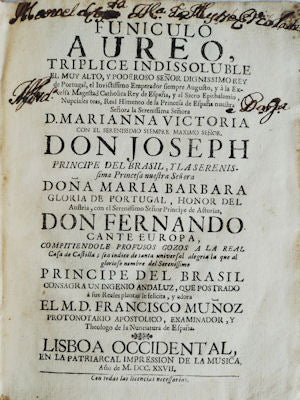 FUNICULO
AUREO,
TRIPLICE INDISSOLUBLE
EL MUY ALTO, Y PODEROSO SEÑOR DIGNISSIMO REY
de Portugal, el Invictissimo Emperador siempre Augusto, y à la Ex-
celsa Magestad Catholica Rey de España, y al Sacro Epithalamio
Nupciales teas, Real Himeneo de la Princesa de España nuestra
Señora la Serenissima Señora
D. MARIANNA VICTORIA
CON EL SERENISSIMO SIEMPRE MAXIMO SEÑOR,
DON JOSEPH
PRINCIPE DEL BRASIL, Y LA SERENIS-
sima Princesa nuestra Señora
DOÑA MARIA BARBARA
GLORIA DE PORTUGAL, HONOR DEL
Austria, con el Serenissimo Señor Principe de Asturias,
DON FERNANDO.
CANTE EUROPA,
COMPITIENDOLE PROFUSOS GOZOS A LA REAL
Casa de Castilla; sea indice de tanta universal alegria la que al
glorioso nombre del Serenissimo
PRINCIPE DEL BRASIL
CONSAGRA UN INGENIO ANDALUZ, QUE POSTRADO
à sus Reales plantas le felicita, y adora
EL M.D. FRANCISCO MUÑOZ
PROTONOTARIO APOSTOLICO, EXAMINADOR, Y
Theologo de la Nunciatura de España.
LISBOA OCCIDENTAL,
EN LA PATRIARCAL IMPRESSION DE LA MUSICA,
Año de M. DCC. XXVII.
Con todas las licencias necessarias.